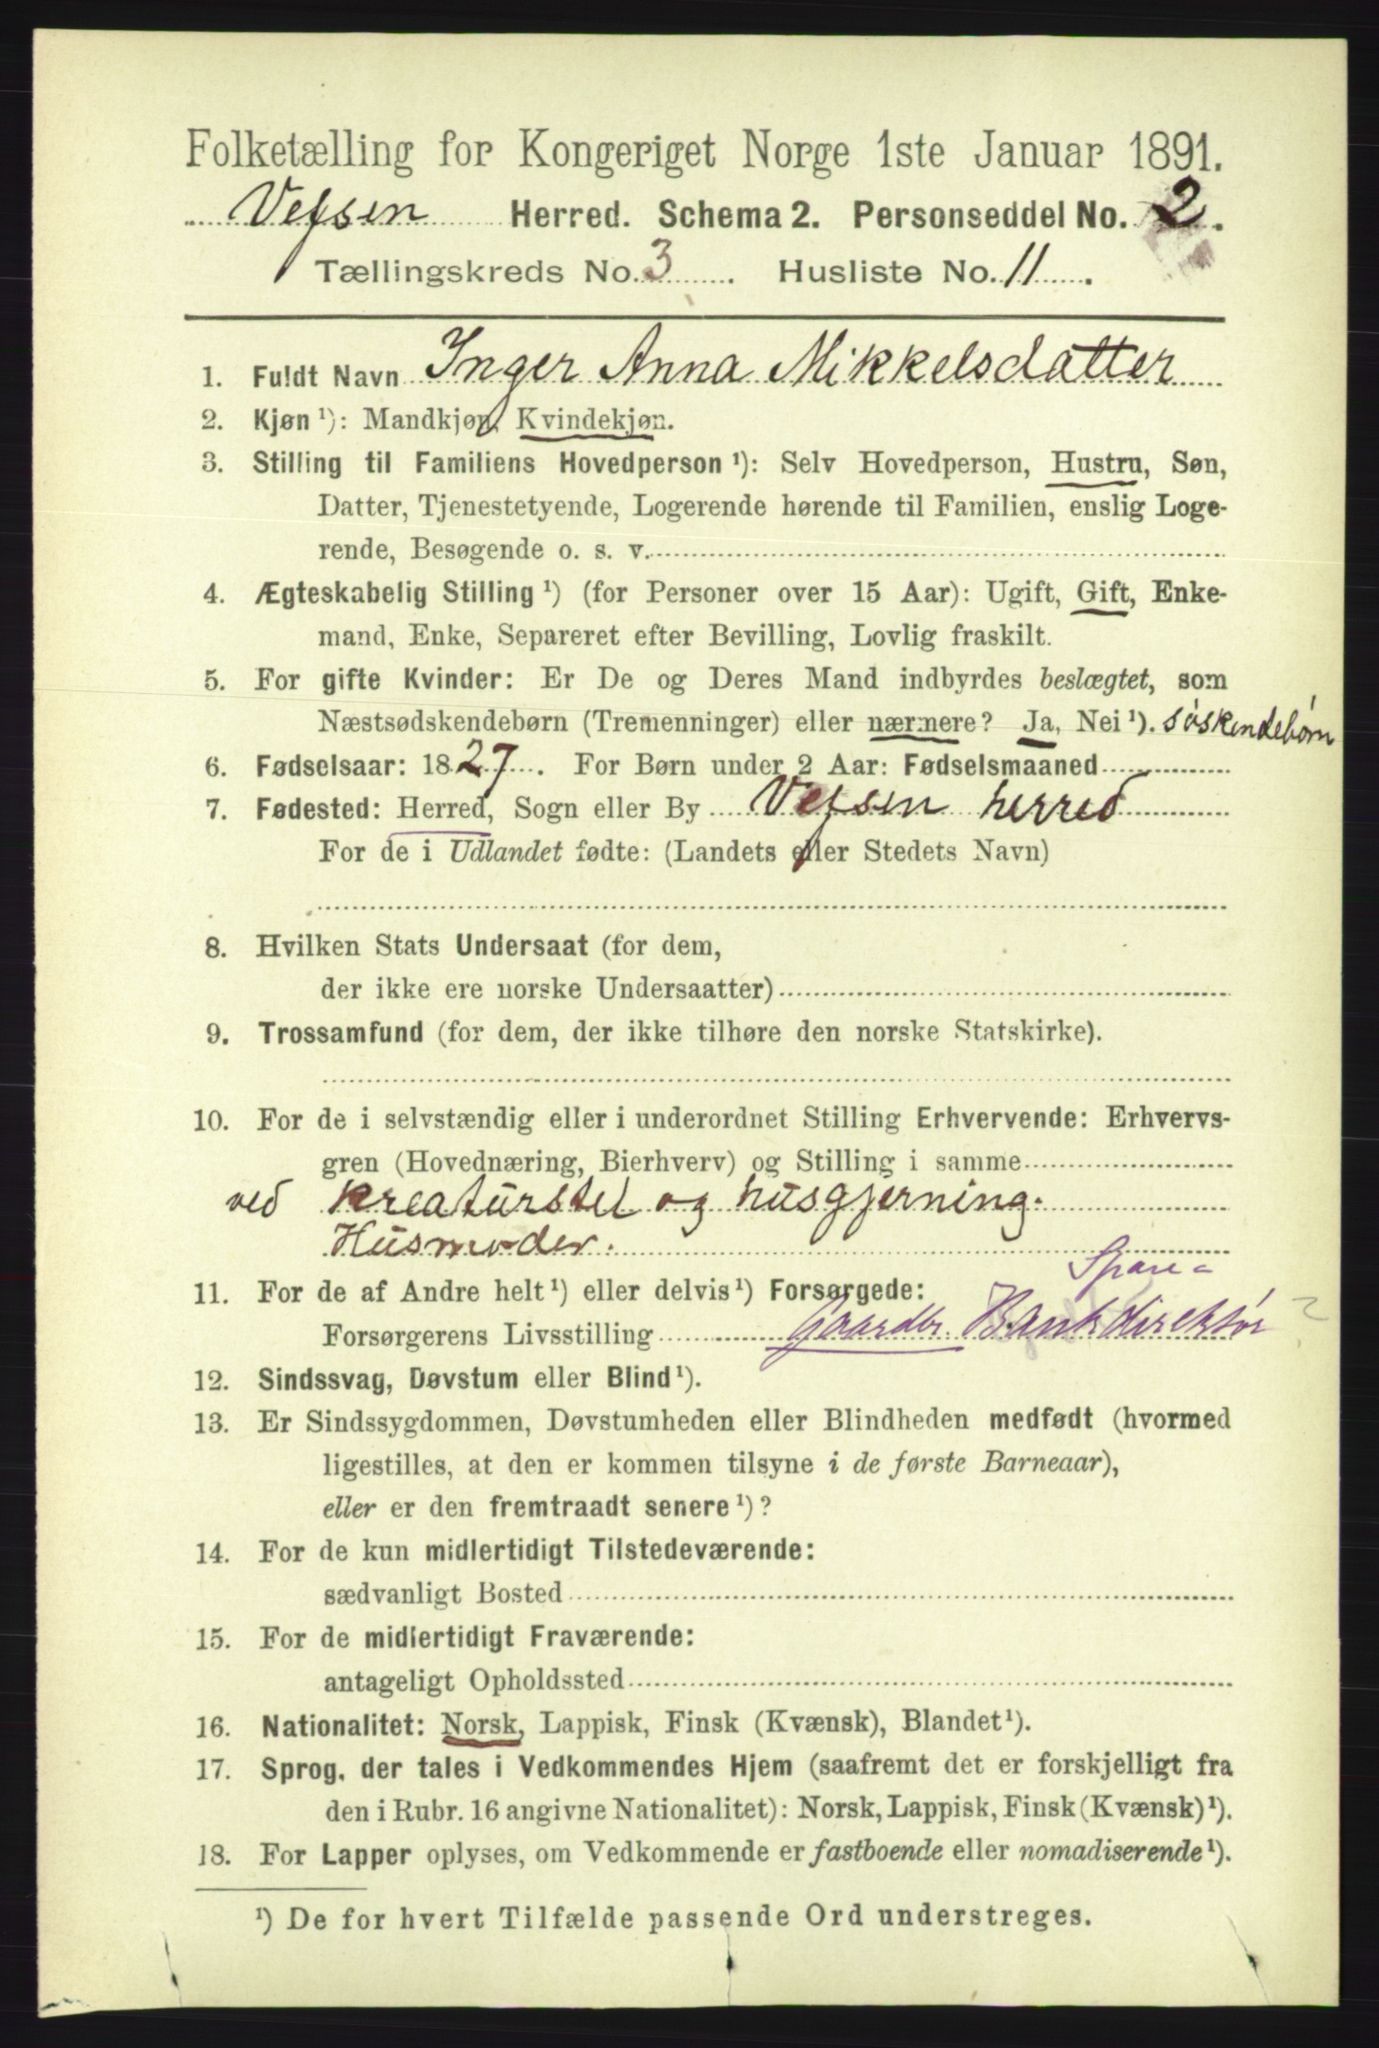 Folketælling for Kongeriget Norge 1ste Januar 1891.
Vefsen Herred. Schema 2. Personseddel No. 2.
Tællingskreds No. 3. Husliste No. 11.
1. Fuldt Navn Inger Anna Mikkelsdatter
2. Kjøn ¹): Mandkjøn, Kvindekjøn.
3. Stilling til Familiens Hovedperson ¹): Selv Hovedperson, Hustru, Søn,
Datter, Tjenestetyende, Logerende hørende til Familien, enslig Loge-
rende, Besøgende o. s. v.
4. Ægteskabelig Stilling ¹) (for Personer over 15 Aar): Ugift, Gift, Enke-
mand, Enke, Separeret efter Bevilling, Lovlig fraskilt.
5. For gifte Kvinder: Er De og Deres Mand indbyrdes beslægtet, som
Næstsødskendebørn (Tremenninger) eller nærmere? Ja, Nei ¹). søskendebørn
6. Fødselsaar: 1827. For Børn under 2 Aar: Fødselsmaaned
7. Fødested: Herred, Sogn eller By Vefsen herred
For de i Udlandet fødte: (Landets eller Stedets Navn)
8. Hvilken Stats Undersaat (for dem,
der ikke ere norske Undersaatter)
9. Trossamfund (for dem, der ikke tilhøre den norske Statskirke).
10. For de i selvstændig eller i underordnet Stilling Erhvervende: Erhvervs-
gren (Hovednæring, Bierhverv) og Stilling i samme
ved kreaturstel og husgjerning.
Husmoder.
11. For de af Andre helt ¹) eller delvis ¹) Forsørgede:
Spare-
Forsørgerens Livsstilling Gaardbr. Bankdirektør ?
12. Sindssvag, Døvstum eller Blind ¹).
13. Er Sindssygdommen, Døvstumheden eller Blindheden medfødt (hvormed
ligestilles, at den er kommen tilsyne i de første Barneaar),
eller er den fremtraadt senere ¹)?
14. For de kun midlertidigt Tilstedeværende:
sædvanligt Bosted
15. For de midlertidigt Fraværende:
antageligt Opholdssted
16. Nationalitet: Norsk, Lappisk, Finsk (Kvænsk), Blandet ¹).
17. Sprog, der tales i Vedkommendes Hjem (saafremt det er forskjelligt fra
den i Rubr. 16 angivne Nationalitet): Norsk, Lappisk, Finsk (Kvænsk) ¹).
18. For Lapper oplyses, om Vedkommende er fastboende eller nomadiserende ¹).
¹) De for hvert Tilfælde passende Ord understreges.